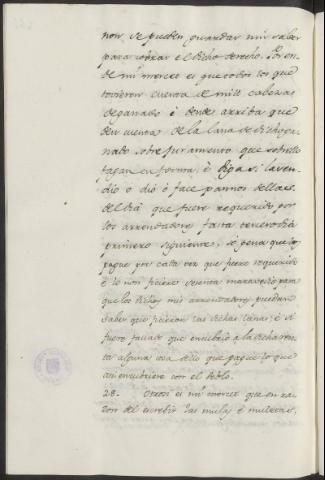 non se pueden guardar nin saber
para cobrar el dicho derecho. Por en-
de mi merced es que todos los que
tovieren cuenta de mill cabezas
de ganado è dende arriba que
den cuenta de la lana de dicho ga-
nado sobre juramento que sobrello
fagan en forma, è diga si la ven-
dio o dió ò face pannos dellas
del dia que fuere requerido por
los arrendadores fasta tercero dia
primero siguiente, só pena que lo
pague por cada vez que fuere requerido
è lo non ficiere, maravedis para
que los dichos mis arrendadores puedan
saber que ficieron las dichas lanas; è si
fuere fallado que encubrió a la dicha ren-
ta alguna cosa dello que pague lo que
ansi encubriere con el doblo.
28. Otrosi es mi merced que en ra-
zon del escrebir las mulas è muletas,